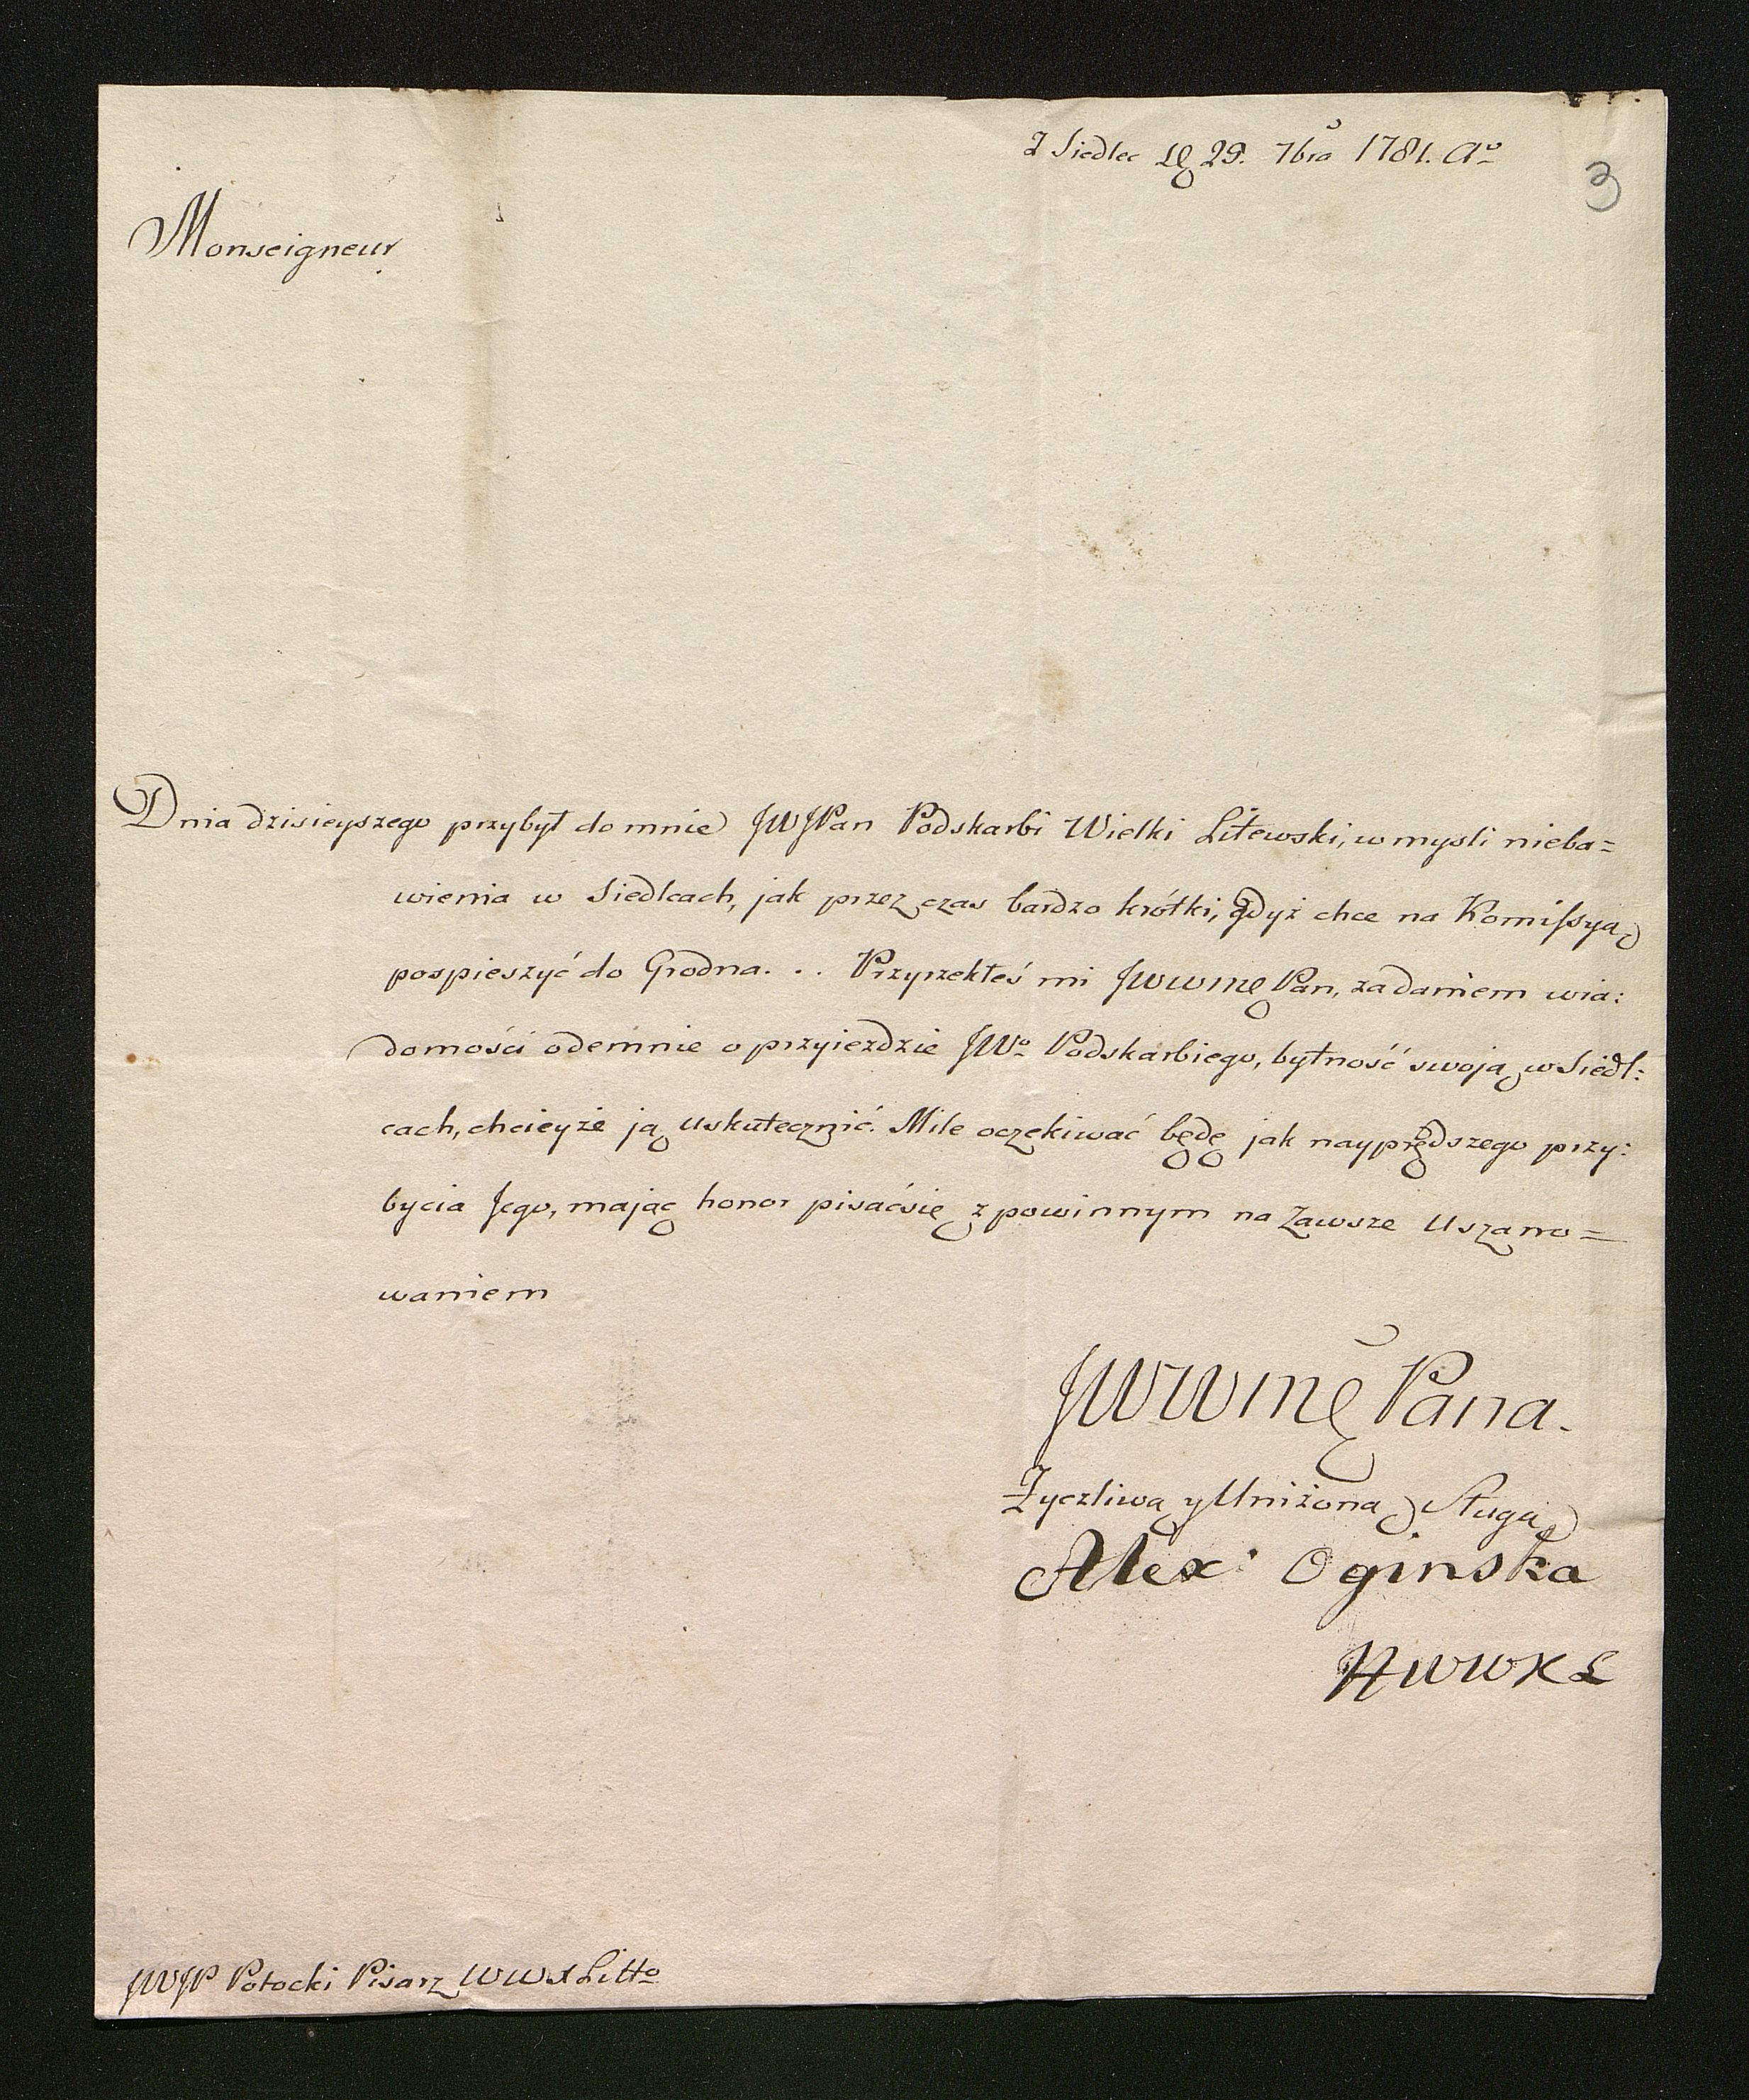 Z Siedlec d 29. 7bra 1781. Aº
3
Monseigneur
Dnia dzisieyszego przybył do mnie JWJPan Podskarbi Wielki Litewski, w mysli nieba=
wienia w Siedlcach, jak przez czas bardzo krótki, gdyż chce na Komissyą
pospieszyć do Grodna. . . Przyrzekłeś mi JWWMę Pan, za daniem wia:
domości odemnie o przyieździe JWº Podskarbiego, bytność swoją w Siedl:
cach, chcieyże ją uskutecznić. Mile oczekiwać będę jak nayprędszego przy:
bycia Jego, mając honor pisać się z powinnym na zawsze Uszano=
waniem
JWWMę Pana.
Życzliwą y Uniżoną Sługą
Alex: Oginska
HWWXL
JWJP Potocki Pisarz WWXLittº